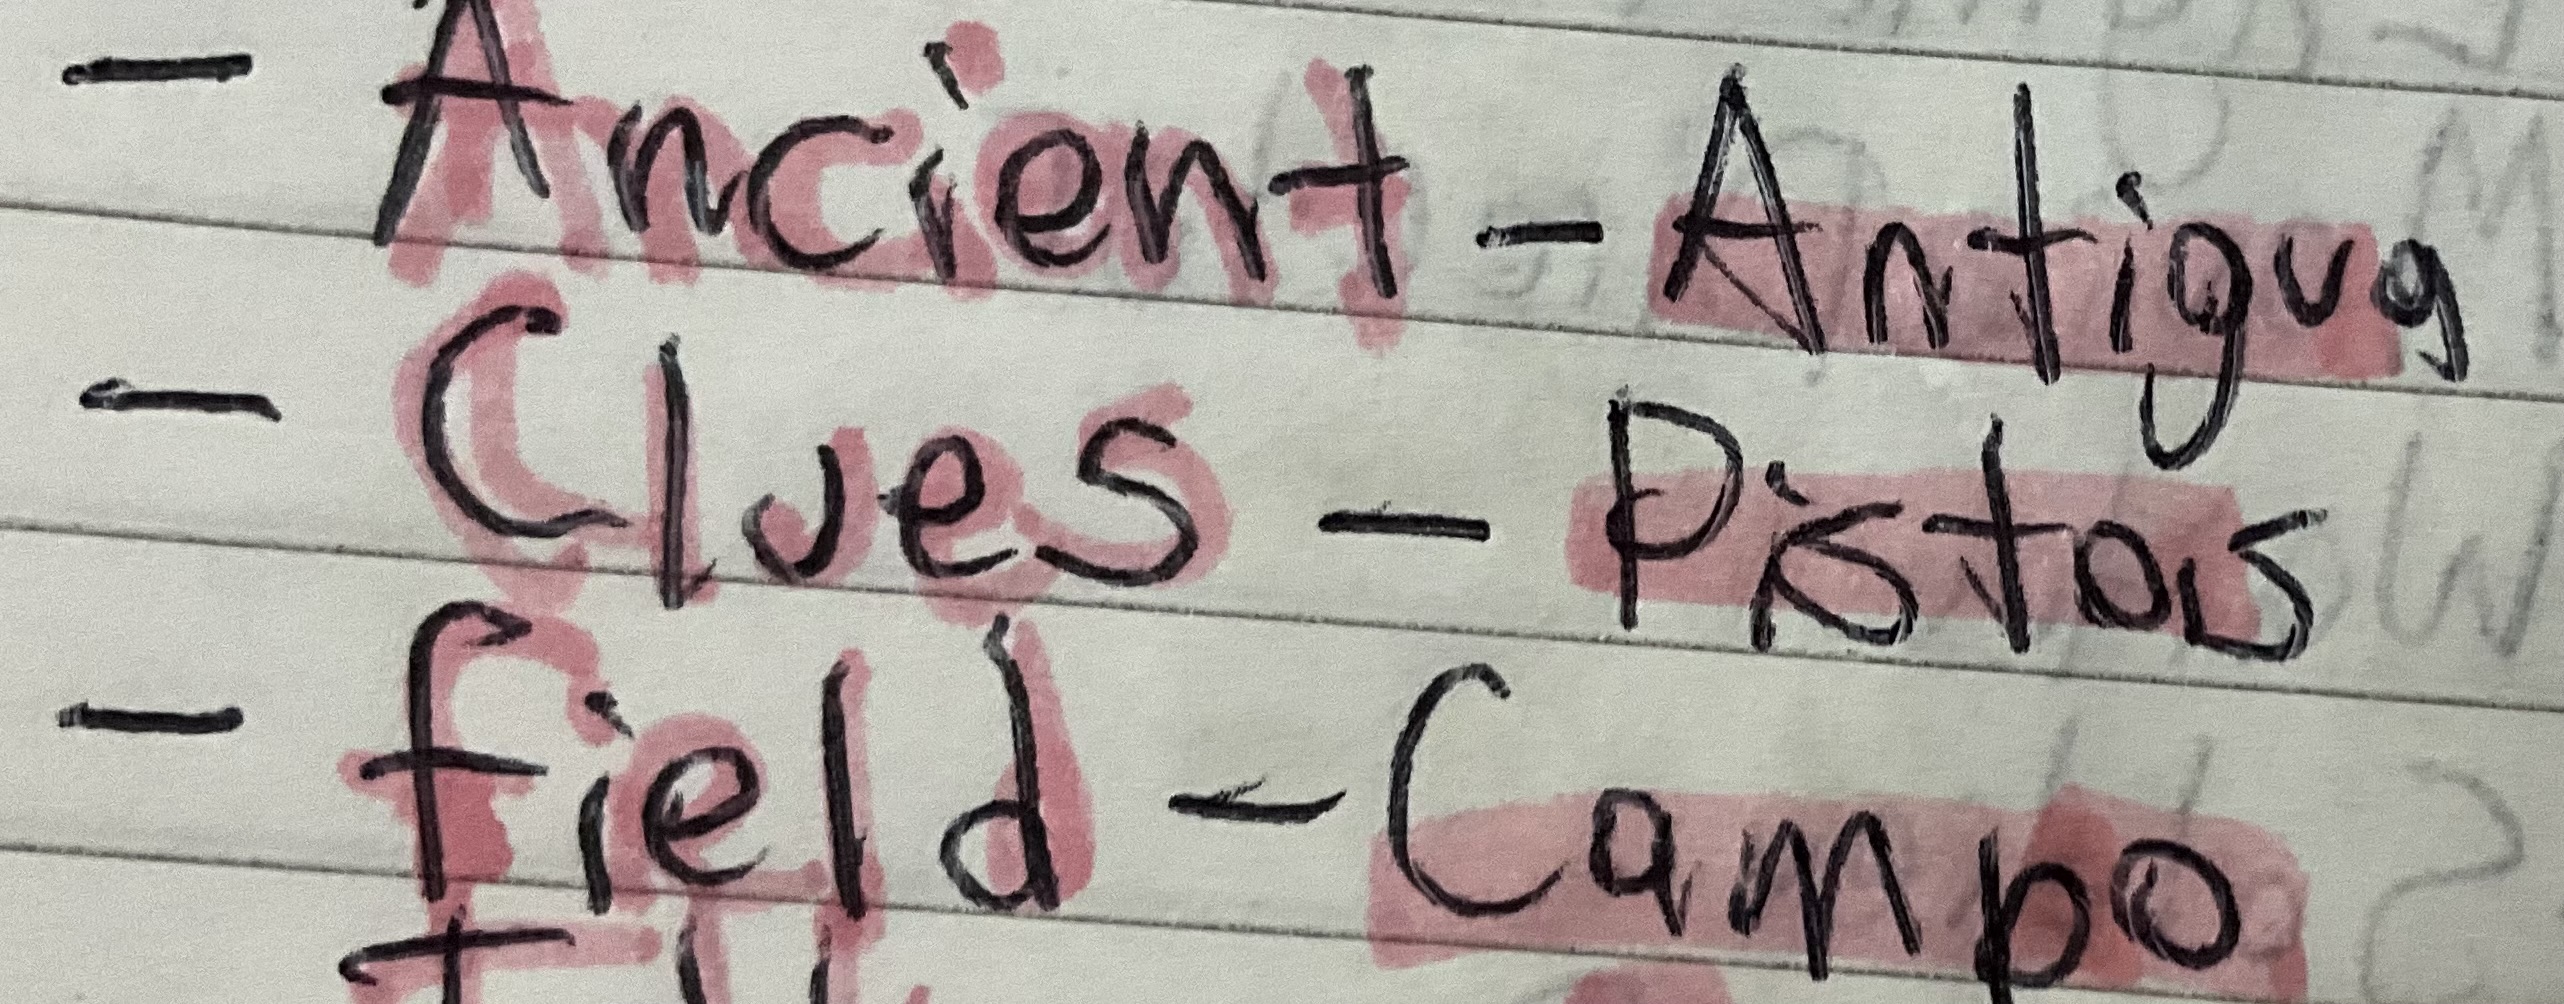 - Ancient - Antigua
- Clues - Pistas
- field - Campo